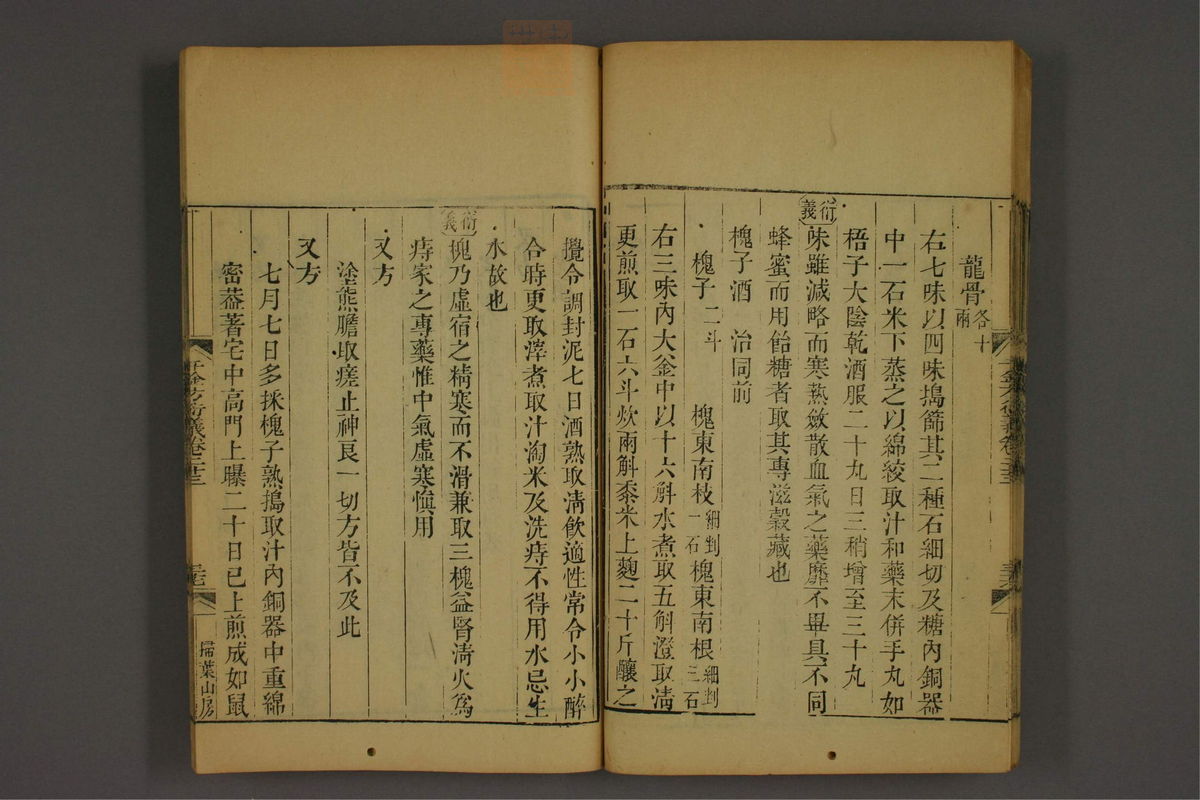 龍骨各十兩
右七味以四味搗篩其二種石細切及糖內銅器
中一石米下蒸之以綿絞取汁和藥末併手丸如
梧子大陰乾酒服二十丸日三稍增至三十丸
衍義
味雖減略而寒熱斂散血氣之藥靡不畢具不同
蜂蜜而用飴糖者取其專滋穀藏也
槐子酒　治同前
槐子二斗　槐東南枝細剉一石　槐東南根細剉三石
右三味內大釜中以十六斛水煮取五斛澄取淸
更煎取一石六斗炊兩斛黍米上麴二十斤釀之
攪令調封泥七日酒熟取淸飮適性常令小小醉
合時更取滓煮取汁淘米及洗痔不得用水忌生
水故也
衍義
槐乃虛宿之精寒而不滑兼取三槐益腎淸火爲
痔家之專藥惟中氣虛寒愼用
又方
塗熊膽取瘥止神良一切方皆不及此
又方
七月七日多採槐子熟搗取汁內銅器中重綿
密葢著宅中高門上曝二十日已上煎成如鼠
千金方衍義卷二十三
掃葉山房